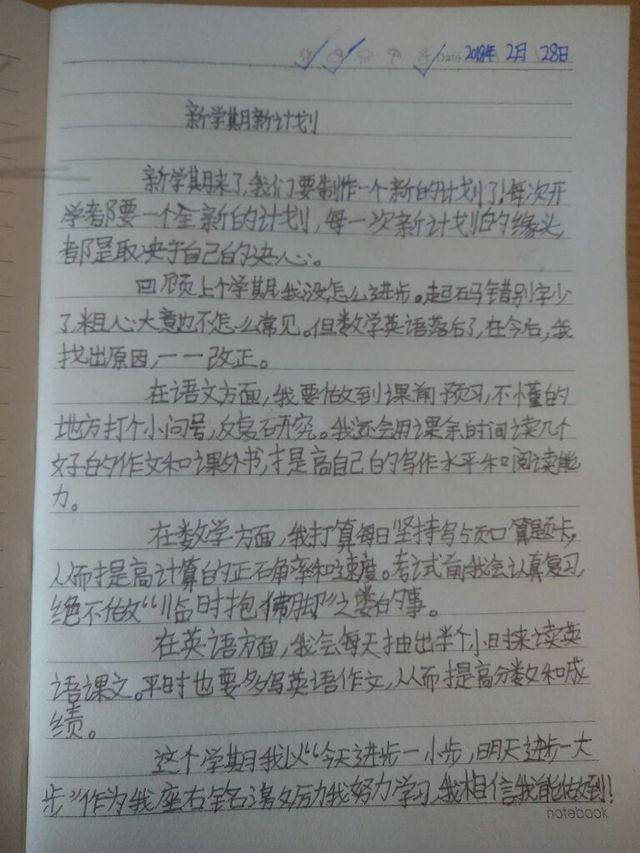 Date 2018年 2月 28日
新学期新计划
新学期来了,我们要制作一个新的计划了!每次开
学都要一个全新的计划,每一次新计划的缘头
都是取决于自己的决心。
回顾上个学期我没怎么进步。起码错别字少
了粗心大意也不怎么常见。但数学英语落后了,在今后,我
找出原因,一一改正。
在语文方面,我要做到课前预习,不懂的
地方打个小问号,反复研究。我还会用课余时间读几个
好的作文和课外书,才提高自己的写作水平和阅读能
力。
在数学方面,我打算每日坚持写5页口算题卡,
从而提高计算的正确率和速度。考试前我会认真复习,
绝不做“临时抱佛脚”之类的事。
在英语方面,我会每天抽出半个小时来读英
语课文。平时也要多写英语作文,从而提高分数和成
绩。
这个学期我以“今天进步一小步,明天进步一大
步”作为我座右铭,我努力学习,我相信我能做到!
notebook